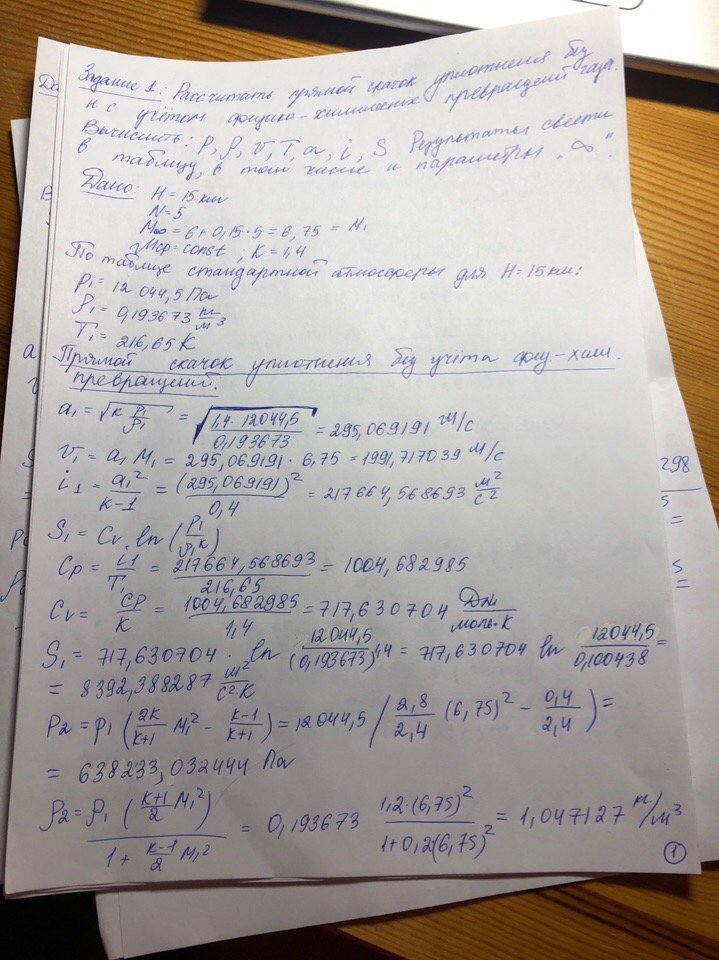 Задание 1: Рассчитать прямой скачок уплотнения без
и с учётом физико-химических превращений газа.
Вычислить: P, ρ, v, T, a, i, S. Результаты свести
в таблицу, в том числе и параметры „∞".
Дано: H = 15 км
N = 5
M∞ = 6 + 0,15·5 = 6,75 = M₁
μср = const, K = 1,4
По таблице стандартной атмосферы для H = 15 км:
P₁ = 12 044,5 Па
ρ₁ = 0,193673 кг/м³
T₁ = 216,65 K
Прямой скачок уплотнения без учёта физ-хим.
превращений.
a₁ = √(K P₁/ρ₁) = √(1,4·12044,5/0,193673) = 295,069191 м/с
v₁ = a₁ M₁ = 295,069191 · 6,75 = 1991,717039 м/с
i₁ = a₁²/(K-1) = (295,069191)²/0,4 = 217664,568693 м²/с²
S₁ = Cv ln (P₁/ρ₁ᴷ)
Cp = i₁/T₁ = 217664,568693/216,65 = 1004,682985
Cv = Cp/K = 1004,682985/1,4 = 717,630704 Дж/моль·К
S₁ = 717,630704 · ln 12044,5/(0,193673)^1,4 = 717,630704 ln 12044,5/0,100438 =
= 8392,388287 м²/с²·К
P₂ = P₁ (2K/(K+1) M₁² - (K-1)/(K+1)) = 12044,5 (2,8/2,4 (6,75)² - 0,4/2,4) =
= 638233,032444 Па
ρ₂ = ρ₁ ((K+1)/2 M₁²)/(1 + (K-1)/2 M₁²) = 0,193673 1,2·(6,75)²/(1+0,2(6,75)²) = 1,047127 кг/м³
1
298